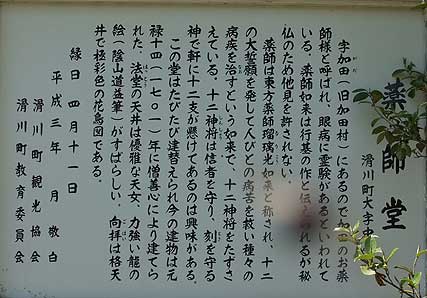 薬師堂
滑川町大字中
字加田(旧加田村)にあるので加田のお薬
師様と呼ばれ、眼病に霊験があるといわれて
いる。薬師如来は行基の作と伝えられるが秘
仏のため他見を許されない。
薬師は東方薬師瑠璃光如来と称され、十二
の大誓願を発して人びとの病苦を救い種々の
病疾を治すという如来で、十二神将をたずさ
えている。十二神将は信者を守り、刻を守る
神で軒に十二支が懸けてあるのは興味がある。
この堂はたびたび建替えられ今の建物は元
禄十四(一七〇一)年に僧善心により建てら
れた。法堂の天井は優雅な天女、力強い龍の
絵(陰山道益筆)がすばらしい。向拝は格天
井で極彩色の花鳥図である。
縁日 四月十一日
平成三年 月 敬白
滑川町観光協会
滑川町教育委員会